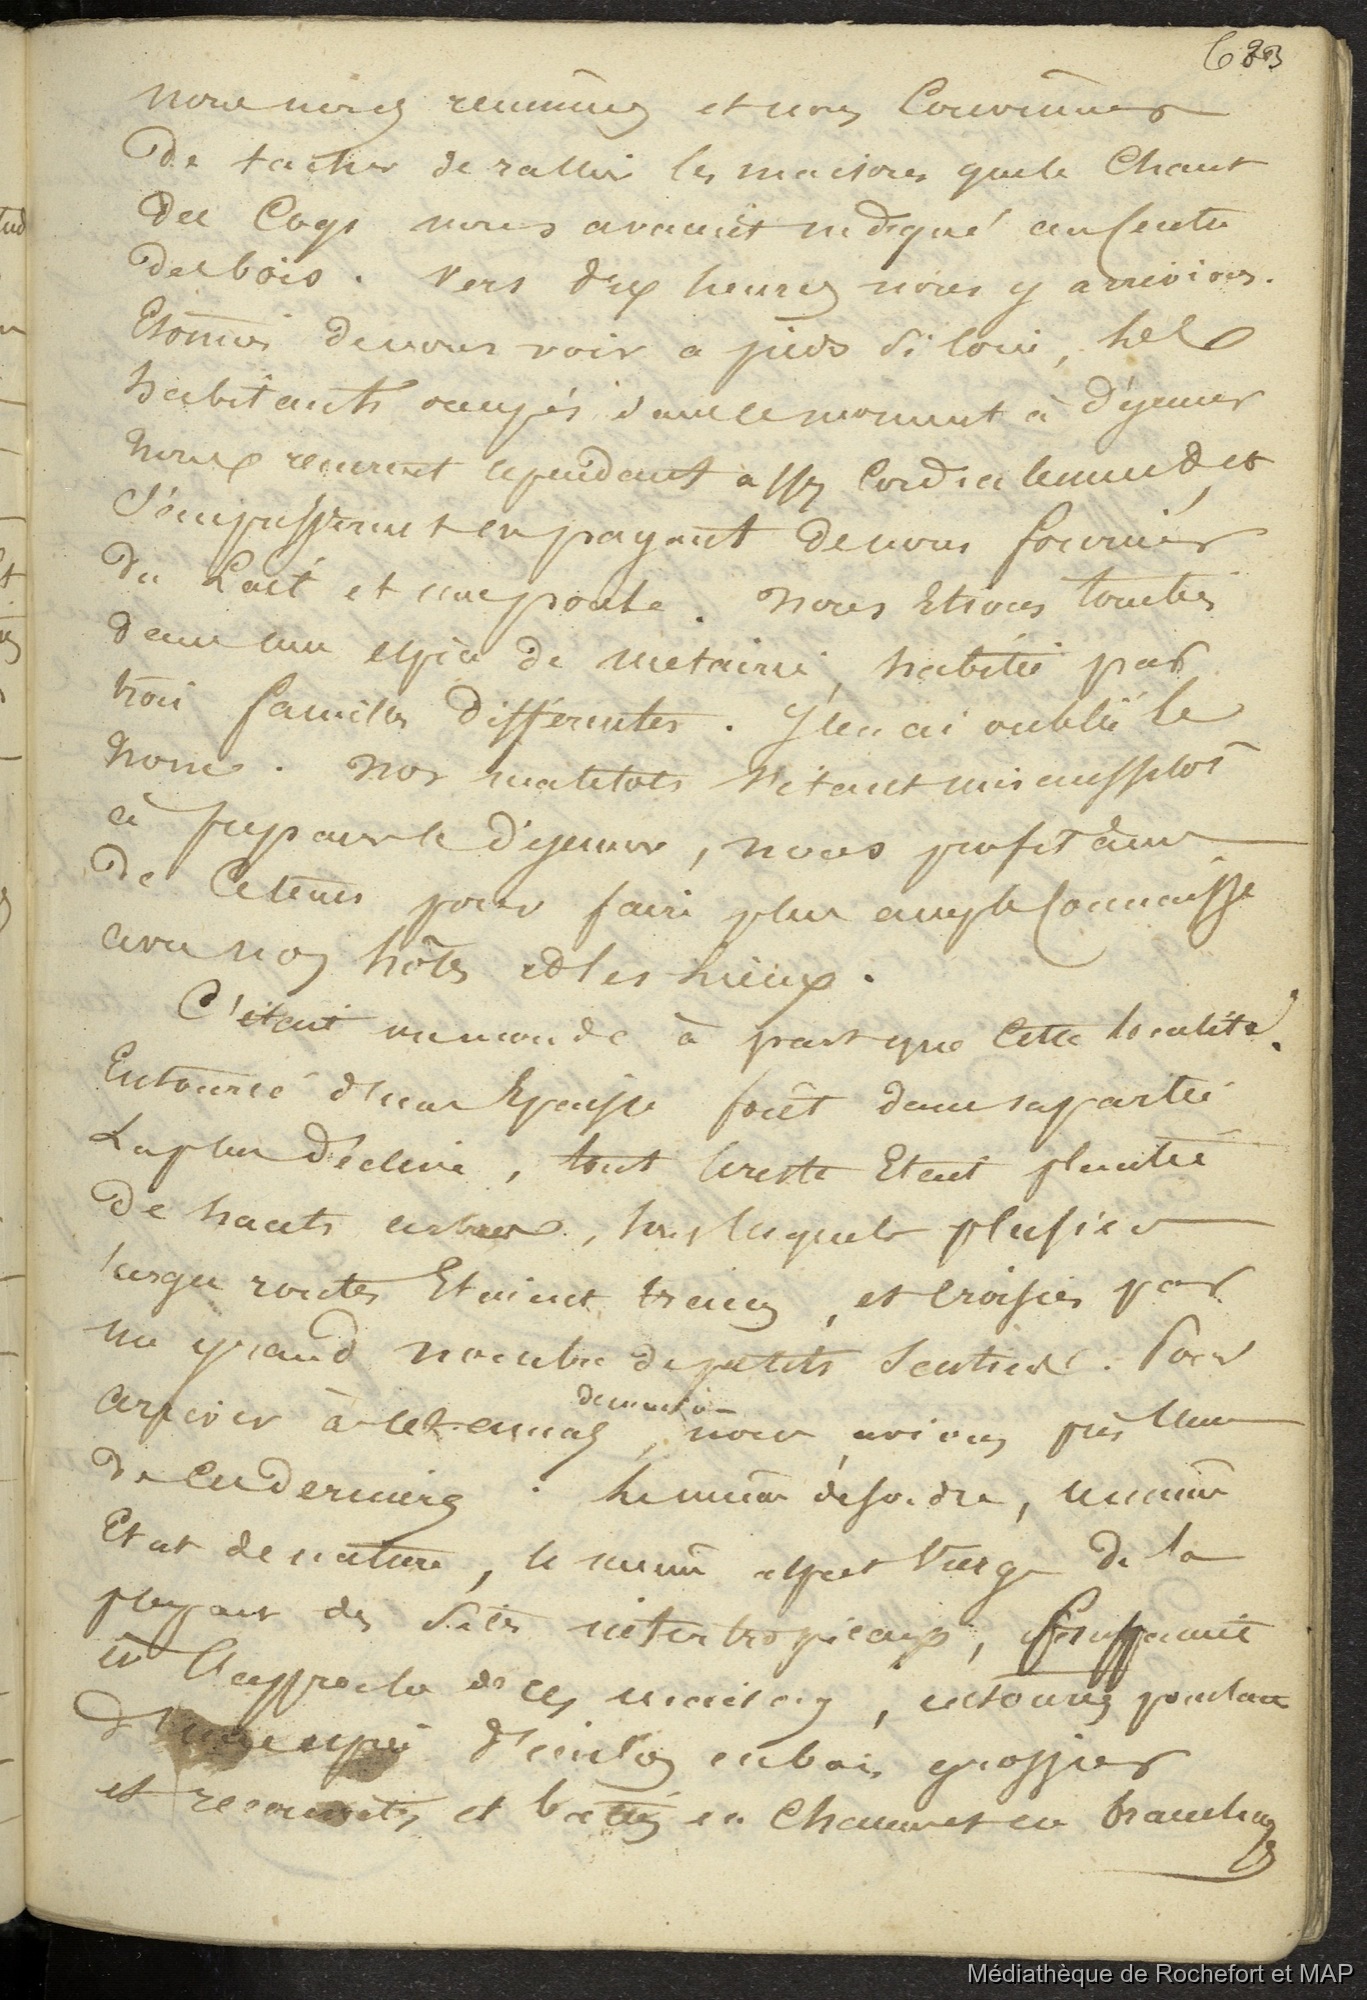 683
nous nous reunimes et nous Convinmes
De tacher de rallier les maisons que le Chant
des Coqs nous avaient indiqué au Centre
des bois. Vers dix heures nous y arrivions.
Etonnés de nous voir a pieds si loin, les
habitants occupés dans le moment à déjeuner
nous recurent cependant assez Cordialement, et
s'empressèrent en payant de nous fournir
du Lait et une poule. Nous Etions tombés
dans une espèce de métairie, habitée par
trois familles differentes. J'en ai oublié le
nom. Nos matelots s'étant mis aussitot
à preparer le déjeuner, nous profitames
De Cetems pour faire plus ample Connaissce
avec nos hôtes et les lieux.
C'était un monde à part que Cette localité.
Entourée d'une Epaisse forêt dans sa partie
La plus déclive, tout le reste Etait planté
De hauts arbres, sous lesquels plusieurs
larges routes Etaient tracées, et croisées par
un grand nombre de petits Sentiers. Pour
arriver à les maisons, nous avions pris l'un
de Ces derniers. Le même désordre, le même
Etat de nature, le même aspect Vierge de la
plupart des sites intertropicaux,
à l'approche de ces maisons, entourées pourtant
d'une espèce d'enclos en bois grossier
et recouvertes et baties en Chaume et en branchages